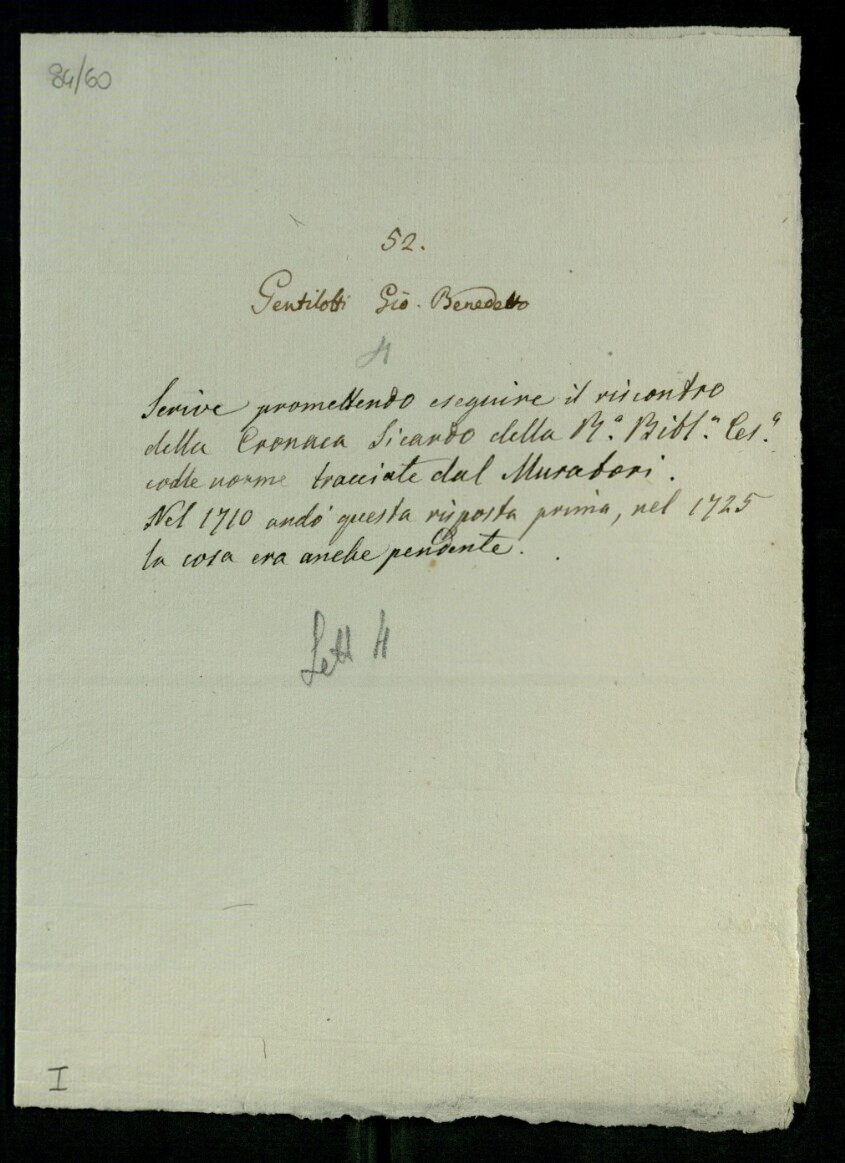 84/60
52.
Gentilotti Gio. Benedetto
4
Scrive promettendo eseguire il riscontro
della Cronaca Sicardo della R.ª Bibl.ª Ces.ª
colle norme tracciate dal Muratori.
Nel 1710 andò questa risposta prima, nel 1725
la cosa era anche pendente.
Lett 4
I